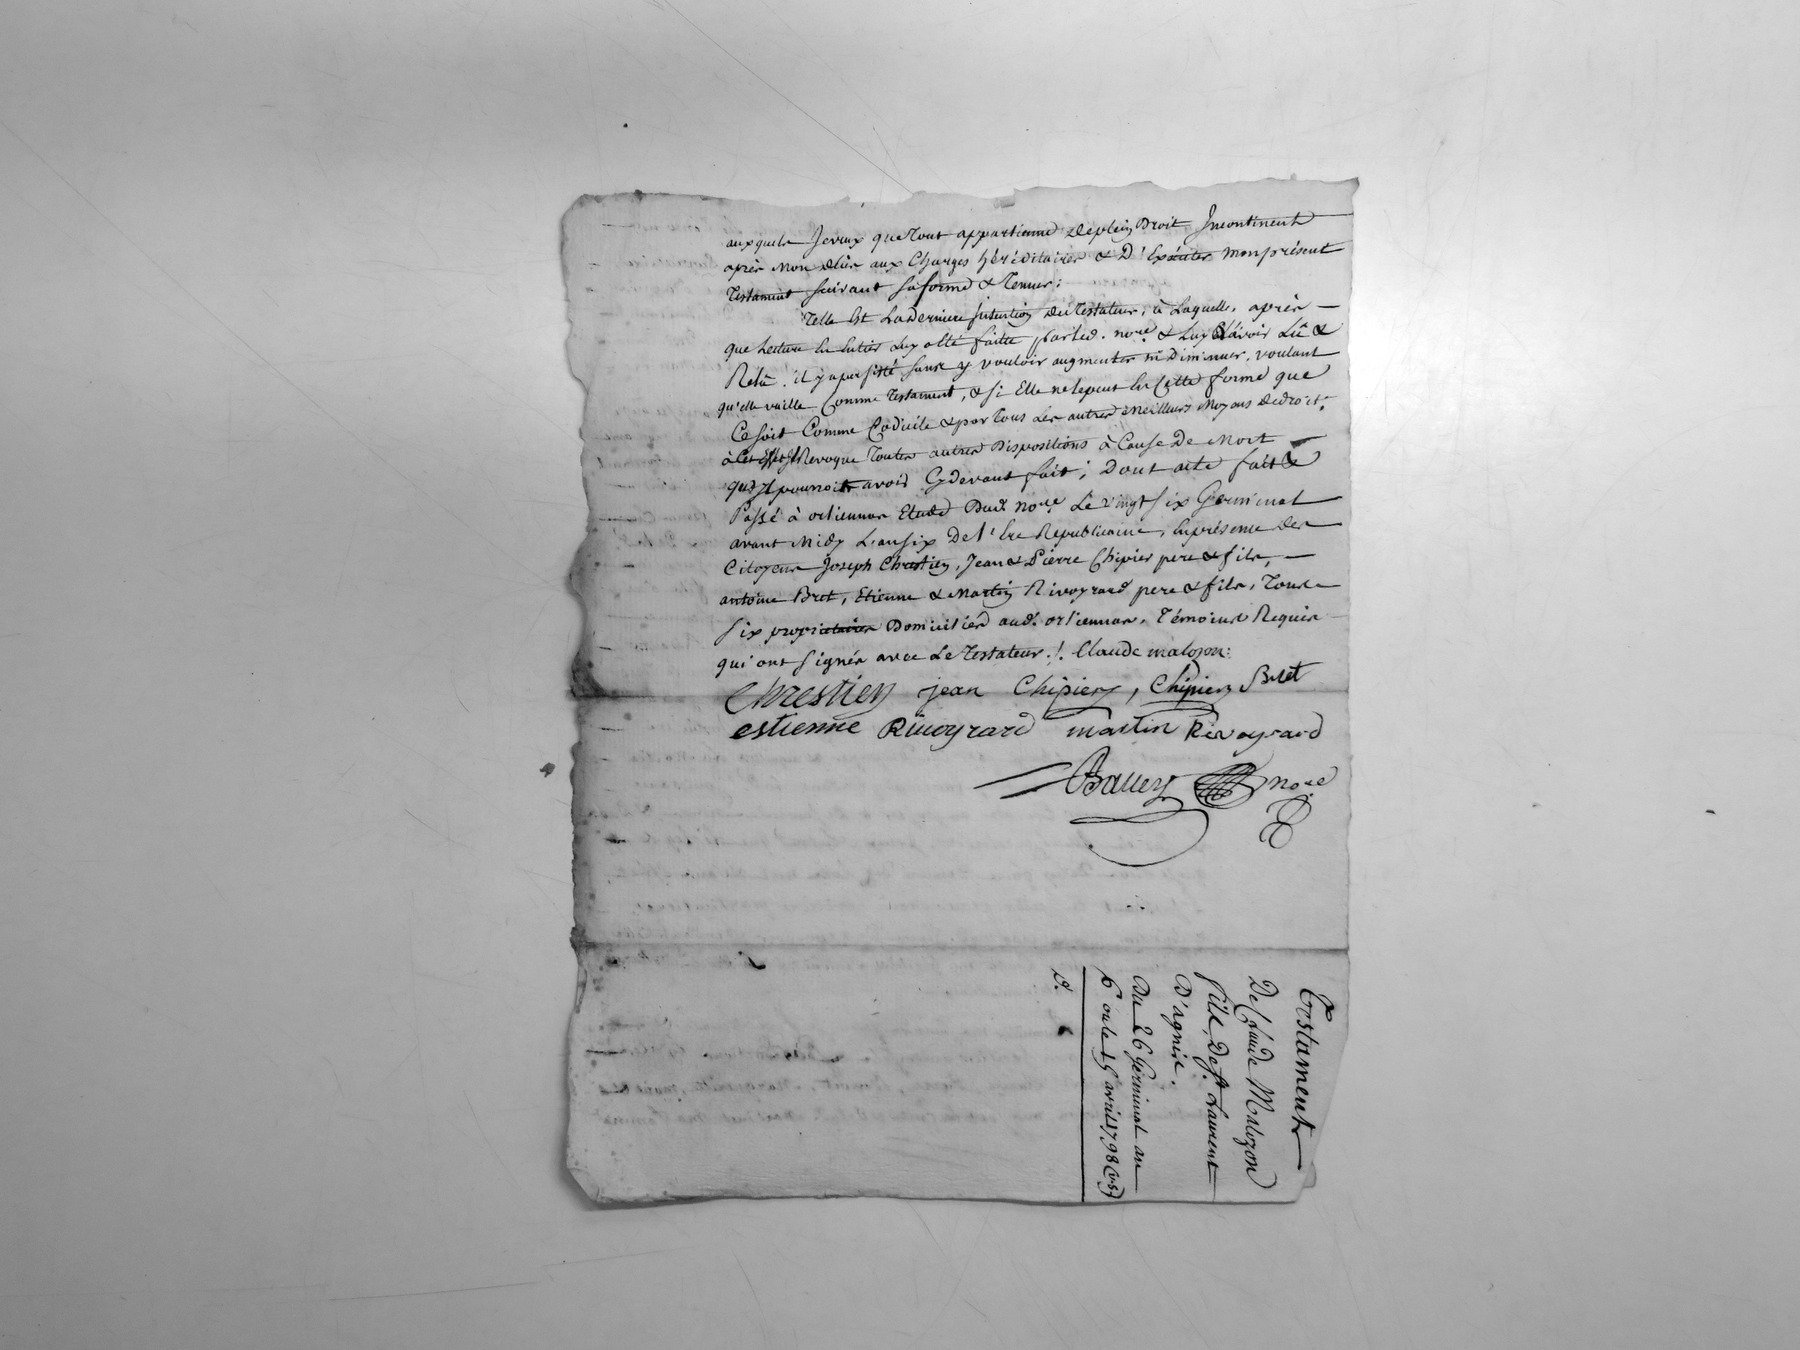 auxquels Jeveux quetout appartienne depleiy Droit Incontinent
après Mon deces aux Charges héréditaires & D'Exécuter monprésent
Testament suivant saforme & Teneur;
Telle Est Laderniere Intention duTestateur, à Laquelle, après
que Lecture En Entier Luy a Eté faitte parled. nore. & Luy Lavoir Lû &
Relû, il yapersisté sans y vouloir augmenter ni Diminuer, voulant
qu'elle vaille Comme Testament, & si Elle nelepeut En Cette forme que
Cesoit Comme Codicile & par Tous Les autres Meilleurs Moyens dedroit,
à Cet Effet Il Revoque Toutes autres Dispositions à Cause De Mort
quil pourroit avoir Cydevant fait; Dont acte fait &
Passé à orliennas Etude Dud. nore. Le vingt six Germinal
avant Midy L'ansix De l'Ere Republicaine, Enprésence des
Citoyens Joseph Chrestiey, Jean & Pierre Chipier pere & fils,
antoine Bret, Etienne & Martiy Rivoyrard pere & fils, Tous
six proprietaires Domiciliés aud. orliennas, Témoins Requis
qui ont signés avec Le Testateur ./. Claude malozon:
Chrestiey jean Chipiery, Chipiery Bret
estienne Riuoyrard martin Rivoyrard
Balley nore
Testament
De Claude Malozon
fils, De St. Laurent
D'agnise.
Du 26 Germinal an
6 ou le 15 avril 1798 (vs)